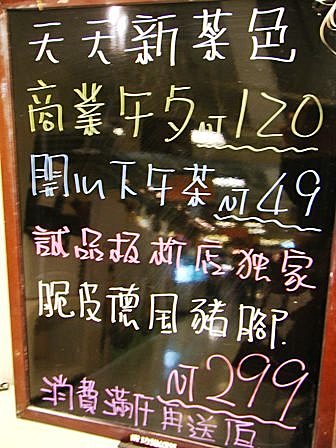 天天新菜色
商業午夕NT120
開心下午茶NT49
誠品板新店独家
脆皮德国豬腳
NT299
消費滿仟再送佰